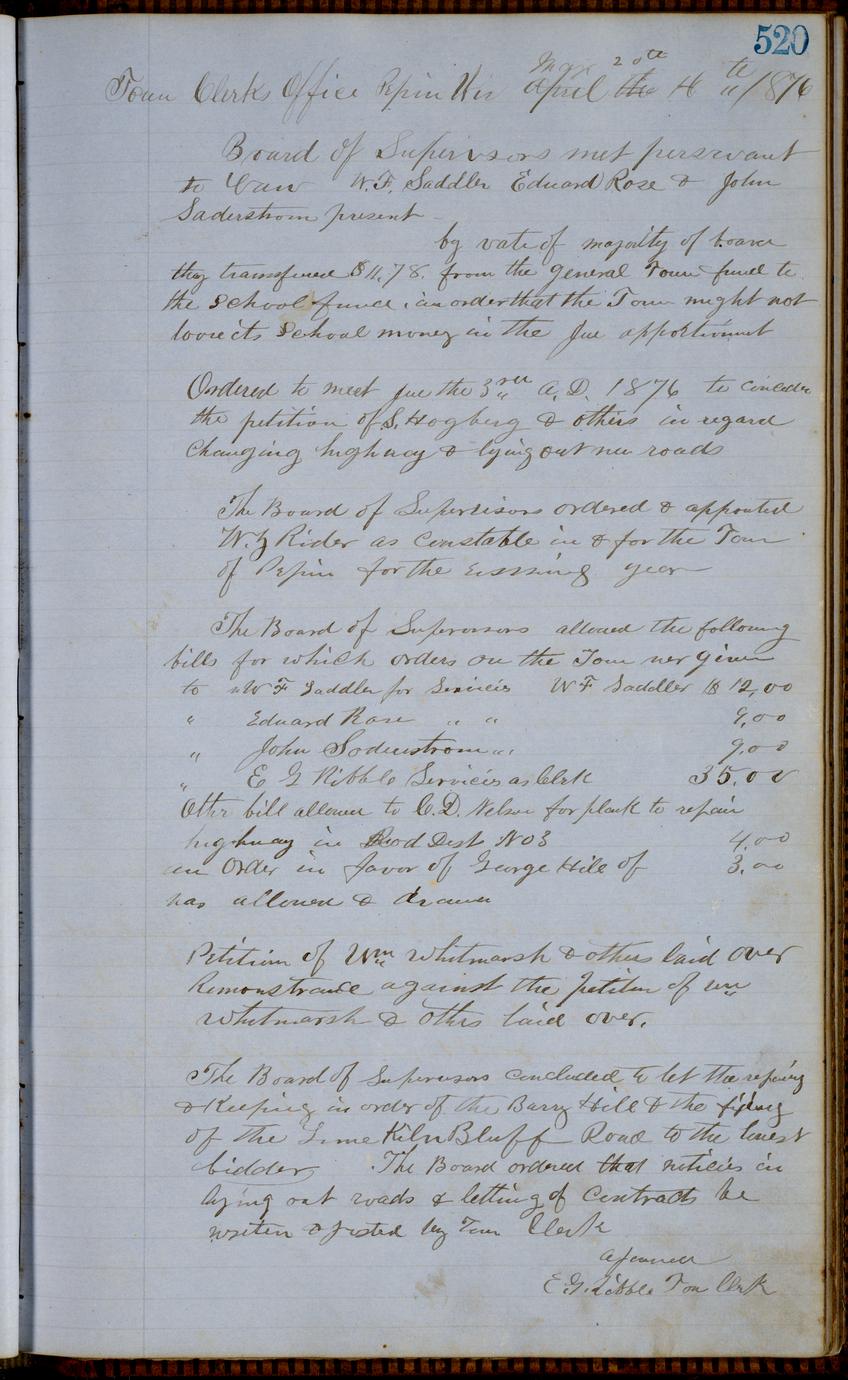 520
May 20th
Town Clerks Office Pepin Wis April the 16th /1876
Board of Supervisors met persuant
to Law W. F. Saddler Eduard Rose & John
Saderstrom present
by vote of majority of board
they transfered $11,78. from the general Town fund to
the School fund in order that the Town might not
loose its School money in the Jue apportionmt
Ordered to meet Jue the 3rd A.D. 1876 to
the petition of S. Hogberg & others in regard
Changing highway & lying out new roads
The Board of Supervisors ordered & appointed
W. Z Rider as Constable in & for the Town
of Pepin for the year
The Board of Supervisors allowed the following
bills for which orders on the Town wer given
to W F Saddler for Services W F Saddler $ 12,00
" Eduard Rose " " 9,00
" John Soderstrom " 9,00
" E G Ribble Services as Clerk 35.00
Other bill allowed to C. D. Nelson for plank to repair
highway in Road Dist No 3 4,00
an Order in favor of George Hile of 3,00
was allowed & drawn
Petition of Wm Whitmarsh & others laid over
Remonstrance against the petition of Wm
Whitmarsh & others laid over.
The Board of Supervisors concluded to let the repairing
& Keeping in order of the Barry Hill & the fixing
of the Lime Kiln Bluff Road to the lowest
bidder The Board ordered that noticies in
lying out roads & letting of Contracts be
writen & posted by Town Clerk
Ajourned
E. G. Ribble Ton Clerk